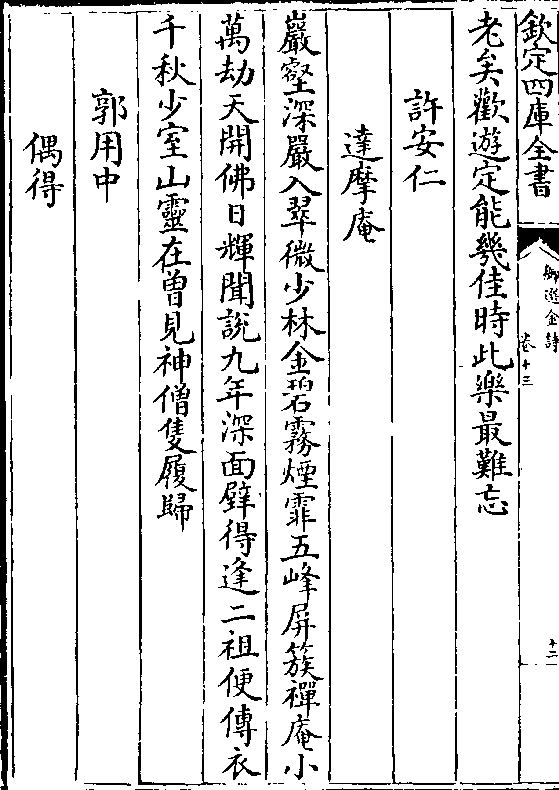 欽定四庫全書
御選金詩
卷十三
十二
老矣歡遊定能幾佳時此樂最難忘
許安仁
達摩庵
巖壑深嚴入翠微少林金碧霧煙霏五峰屏簇禪庵小
萬劫天開佛日輝聞說九年深面壁得逢二祖便傳衣
千秋少室山靈在曾見神僧隻履歸
郭用中
偶得